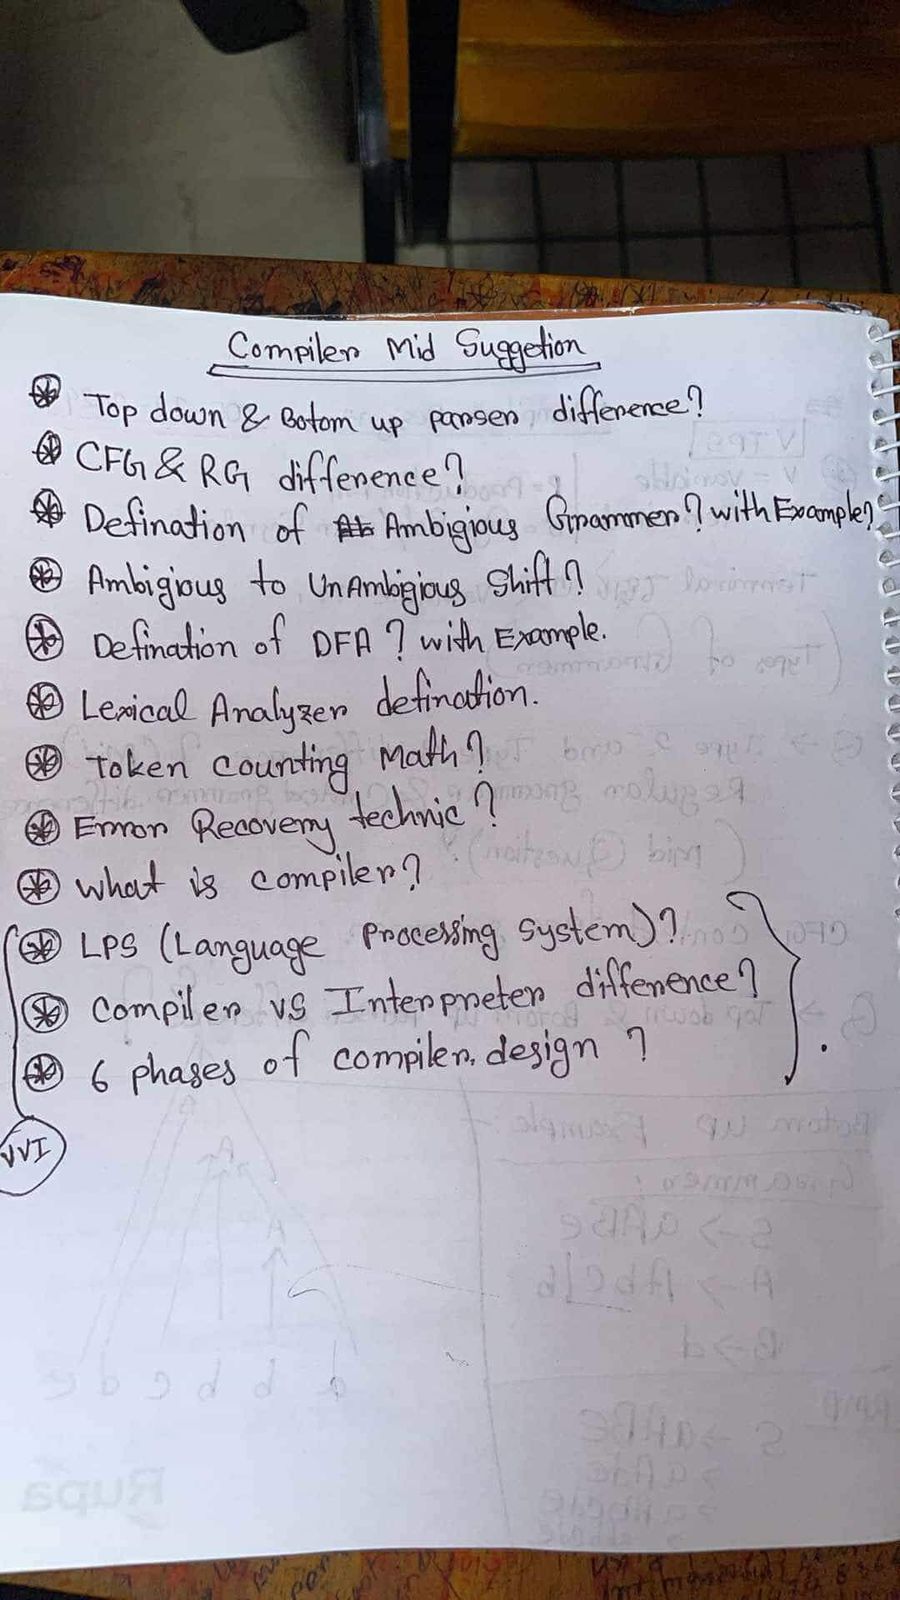 Compiler Mid Suggetion
Top down & Botom up parser difference?
CFG & RG difference?
Defination of Ambigious Grammer? with Example?
Ambigious to UnAmbigious Shift?
Defination of DFA? with Example.
Lexical Analyzer defination.
Token counting Math?
Error Recovery technic?
what is compiler?
LPS (Language Processing System)?
Compiler vs Interpreter difference?
6 phases of compiler design?
VVI